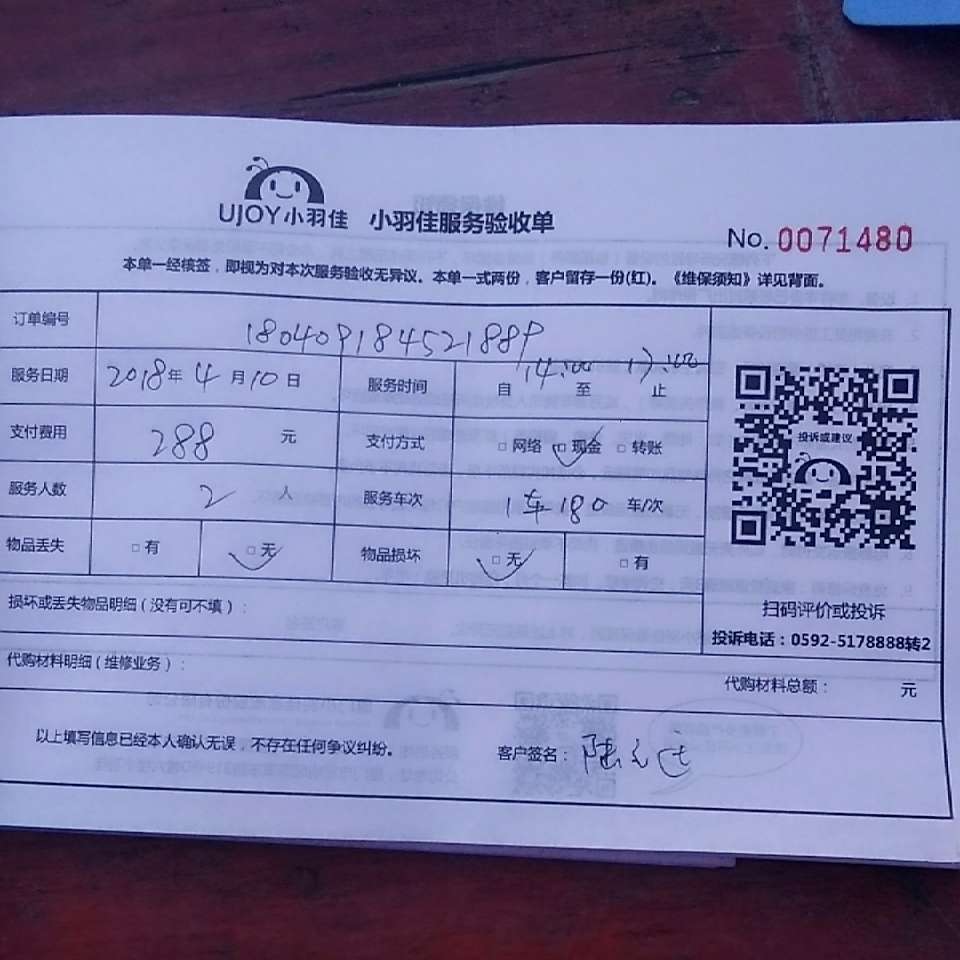 UJOY小羽佳 小羽佳服务验收单
No. 0071480
本单一经核签，即视为对本次服务验收无异议。本单一式两份，客户留存一份(红)。《维保须知》详见背面。
订单编号 180409184521889
服务日期 2018年4月10日 服务时间 自14:00至17:00止
支付费用 288 元 支付方式 □网络 □现金 □转账
投诉或建议
服务人数 2 人 服务车次 1车180 车/次
物品丢失 □有 □无 物品损坏 □无 □有
损坏或丢失物品明细（没有可不填）：
扫码评价或投诉
投诉电话：0592-5178888转2
代购材料明细（维修业务）：
代购材料总额： 元
以上填写信息已经本人确认无误，不存在任何争议纠纷。
客户签名：陆